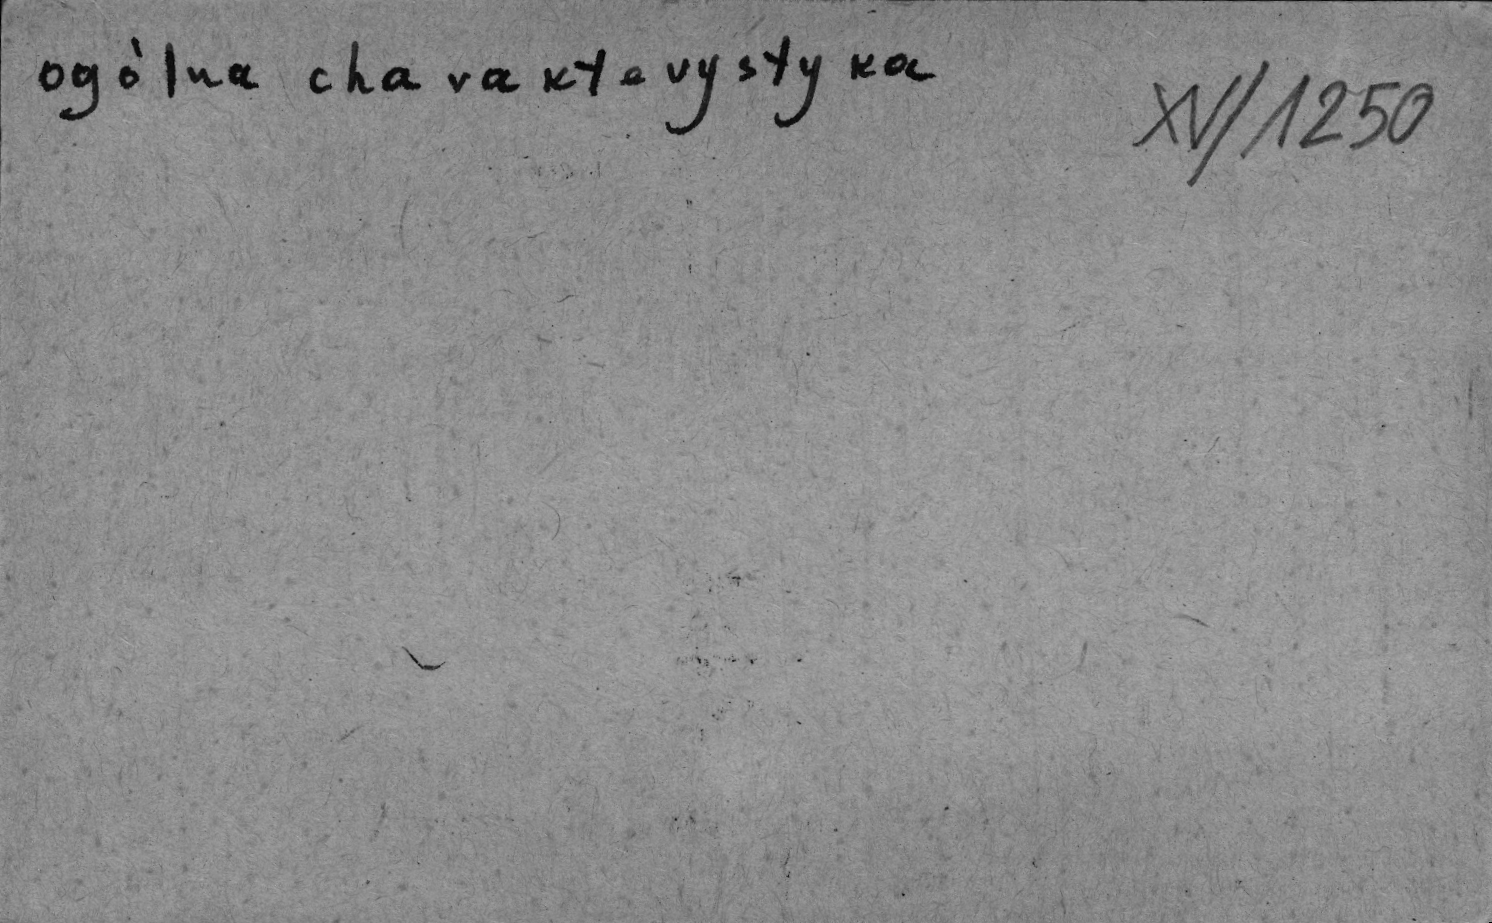 ogólna charakterystyka
XV/1250